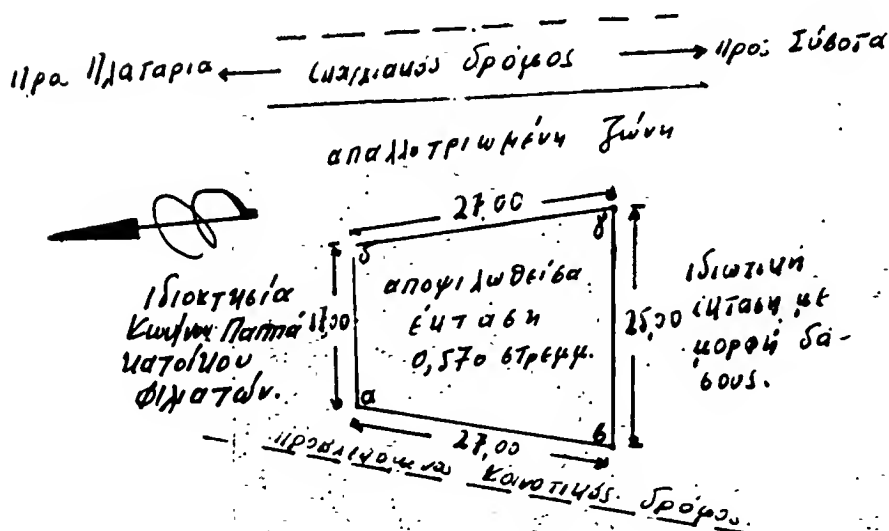 προς Πλαταριά ← επαρχιακός δρόμος → προς Σύβοτα
απαλλοτριωμένη ζώνη
27,00
δ
γ
ιδιοκτησία
Κων/νου Παππά
κατοίκου
Φιλιατών.
17,00
αποψιλωθείσα
έκταση
0,570 στρεμμ.
25,00
ιδιωτική
έκταση με
μορφή δά-
σους.
α
β
27,00
κοινοτικός δρόμος.